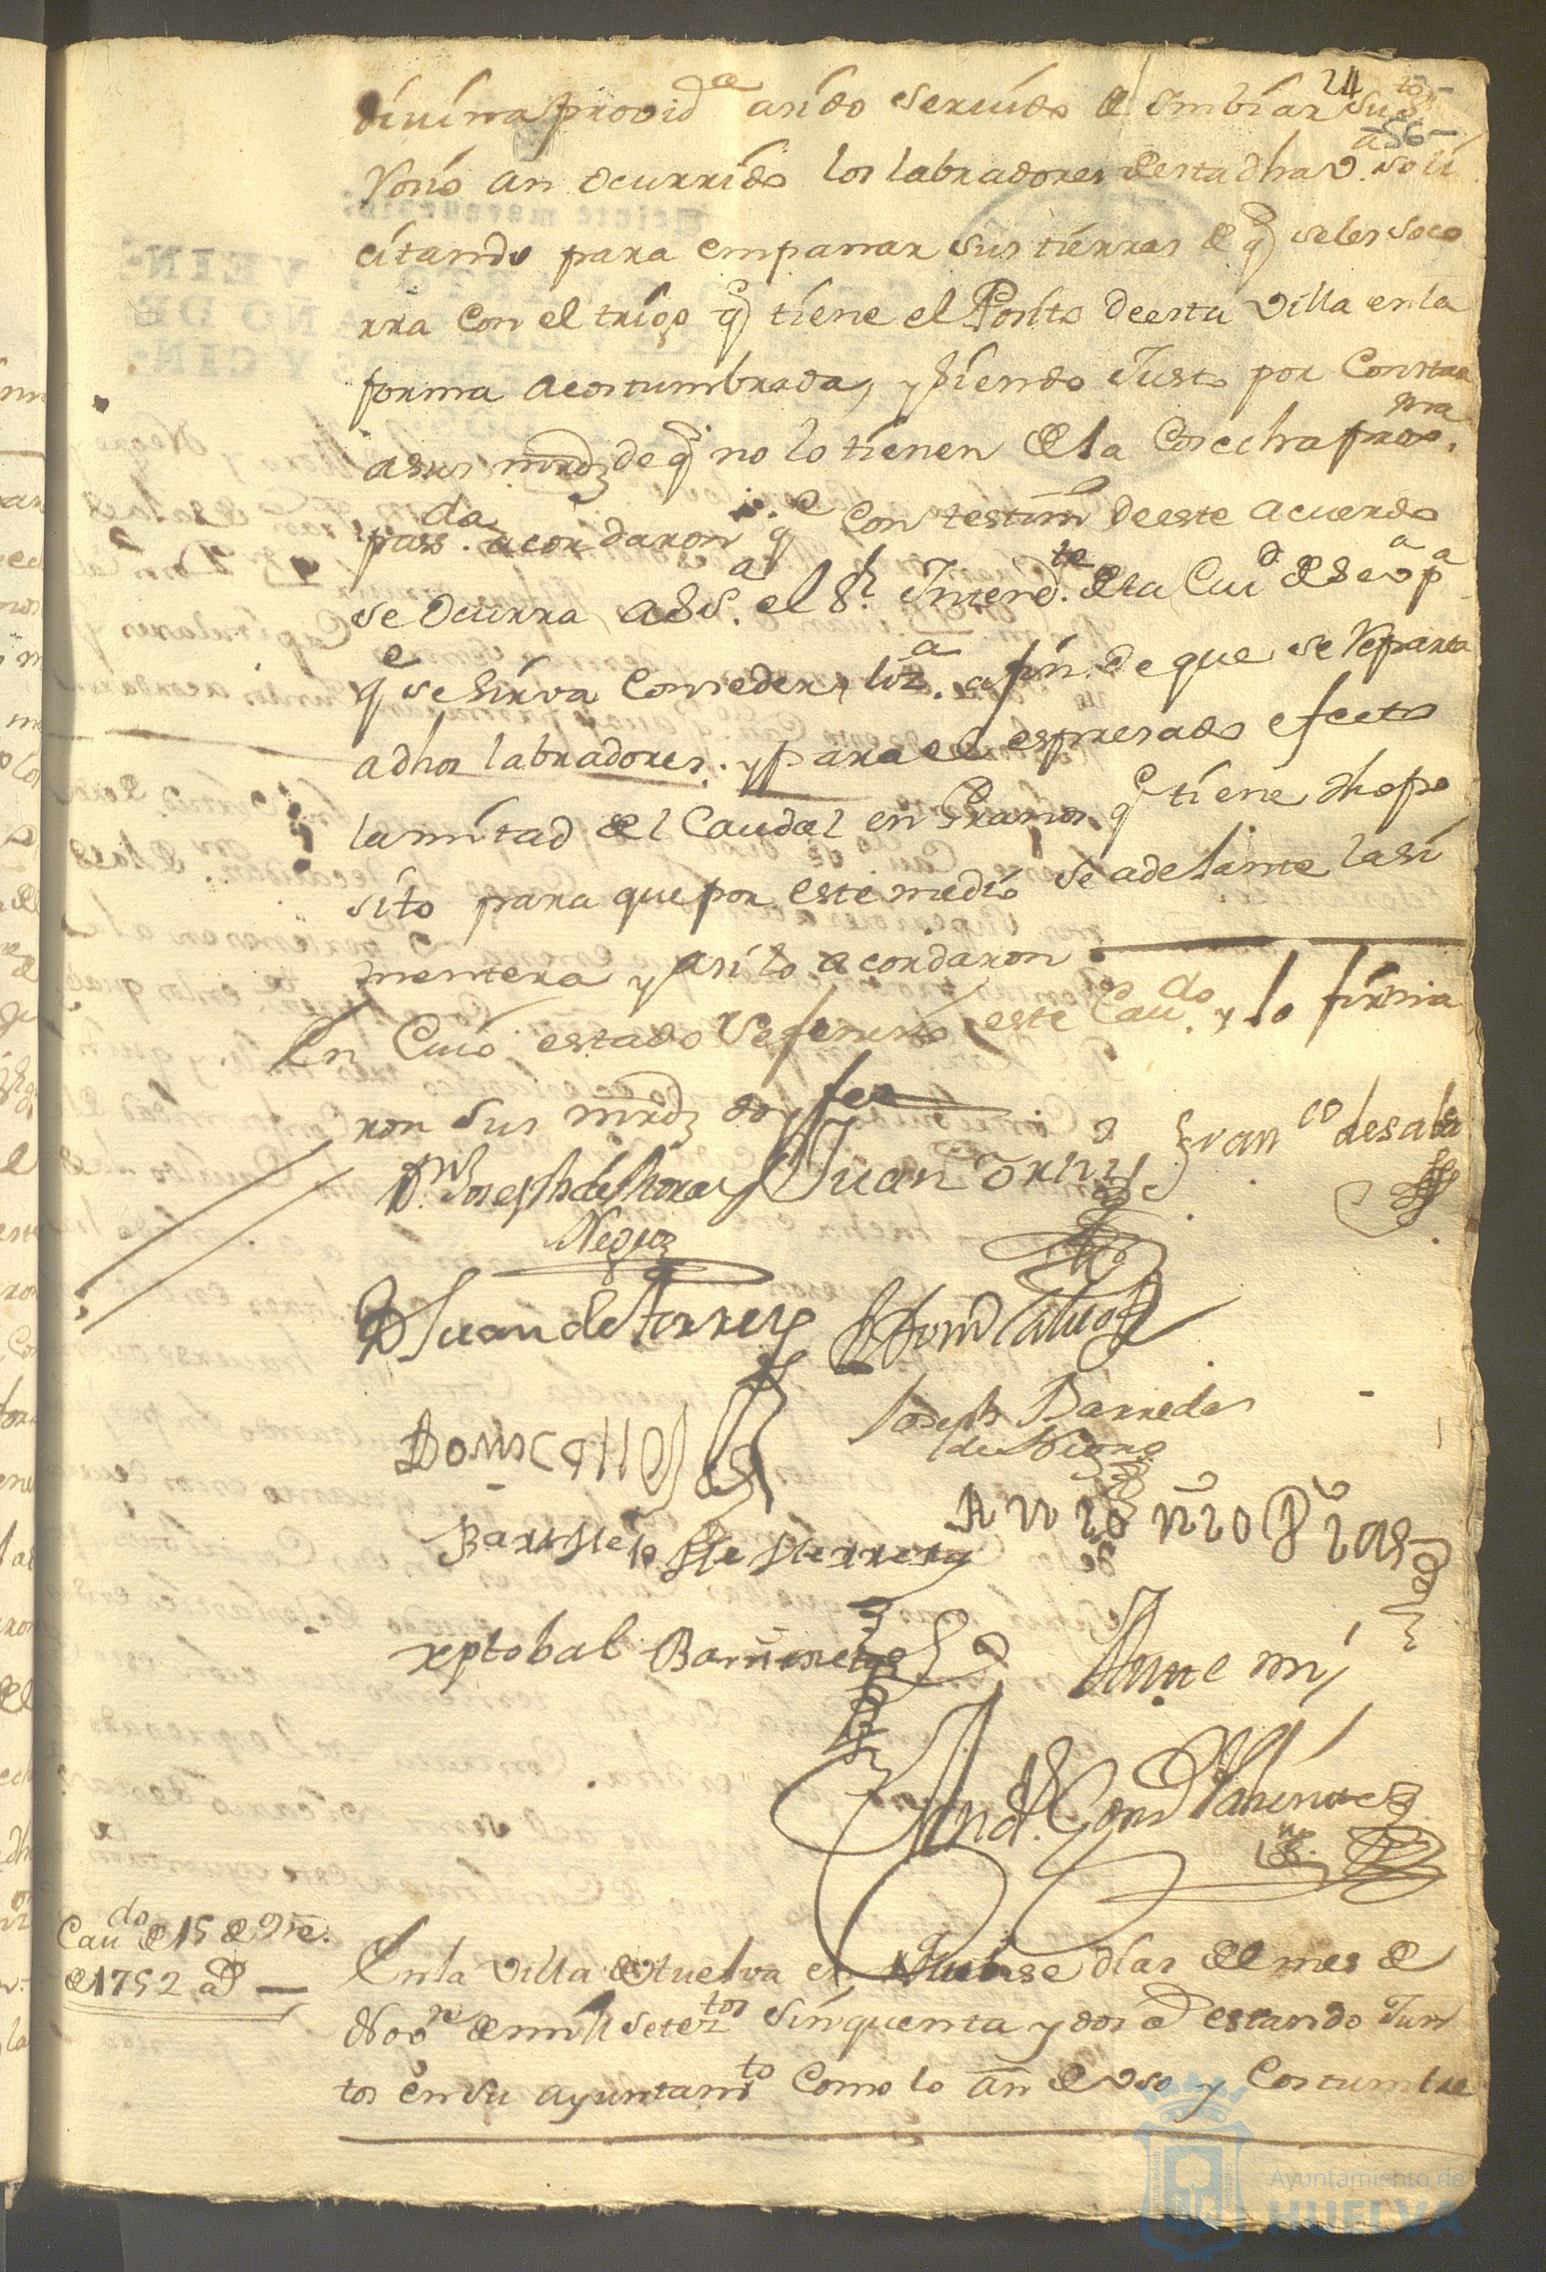 24
56
divina provid.ª asido servido de Imbiar su
Rosio an ocurrido los labradores desta dha v.ª soli
citando para empanar sus tierras de q.e se les soco
rra con el trigo q.e tiene el Posito de esta villa en la
forma acostumbrada, y siendo Justo por Constar
a sus mrdz de q.e no lo tienen de la Cosecha prox.ma
pass.da acordaron q.e con testimº de este acuerdo
se Ocurra a S S.ª el S.r Intend.te de la Ciud de Sev.ª p.ª
q.e se sirva Conseder liz.ª a fin de que se Reparta
a dhos labradores. y para el espresado efecto
la mitad del Caudal en Granos q.e tiene dho po
sito para que por este medio se adelante la si
mentera y asi lo acordaron
En Cuio estado se feneció este Cau.do y lo firma
ron sus mrdz doy fee
D.n Joseph de Mora y Negro
Juan
Fran.co de Sala
D Juan de Torres
Joseph Barreda
de
Bartolle de Herrera
Antonio Dias
xptobal Barrera
Ante mi
Cau.do de 15 de Nre.
de 1752 a.s
En la Villa de Huelva en quinse dias del mes de
Nov.re de mill setez.tos sinquenta y dos a.s estando Jun
tos en su ayuntam.to Como lo an de uso y Costumbre
Ayuntamiento de
HUELVA